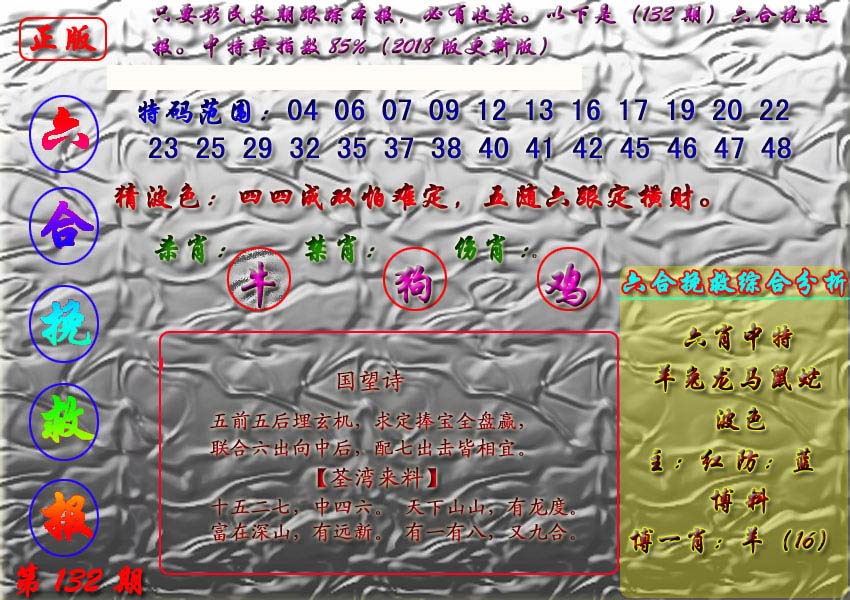 正版
只要彩民长期跟踪本报，必有收获。以下是（132期）六合挽救
报。中特率指数85%（2018版更新版）
六合挽救报
第132期
特码范围：04 06 07 09 12 13 16 17 19 20 22
23 25 29 32 35 37 38 40 41 42 45 46 47 48
猜波色：四四成双怕难定，五随六跟定横财。
杀肖：牛 禁肖：狗 伤肖：鸡。
国望诗
五前五后埋玄机，求定捧宝全盘赢，
联合六出向中后，配七出击皆相宜。
【荃湾来料】
十五二七，中四六。 天下山山，有龙度。
富在深山，有远新。 有一有八，又九合。
六合挽救综合分析
六肖中特
羊兔龙马鼠蛇
波色
主：红防：蓝
博料
博一肖：羊（16）